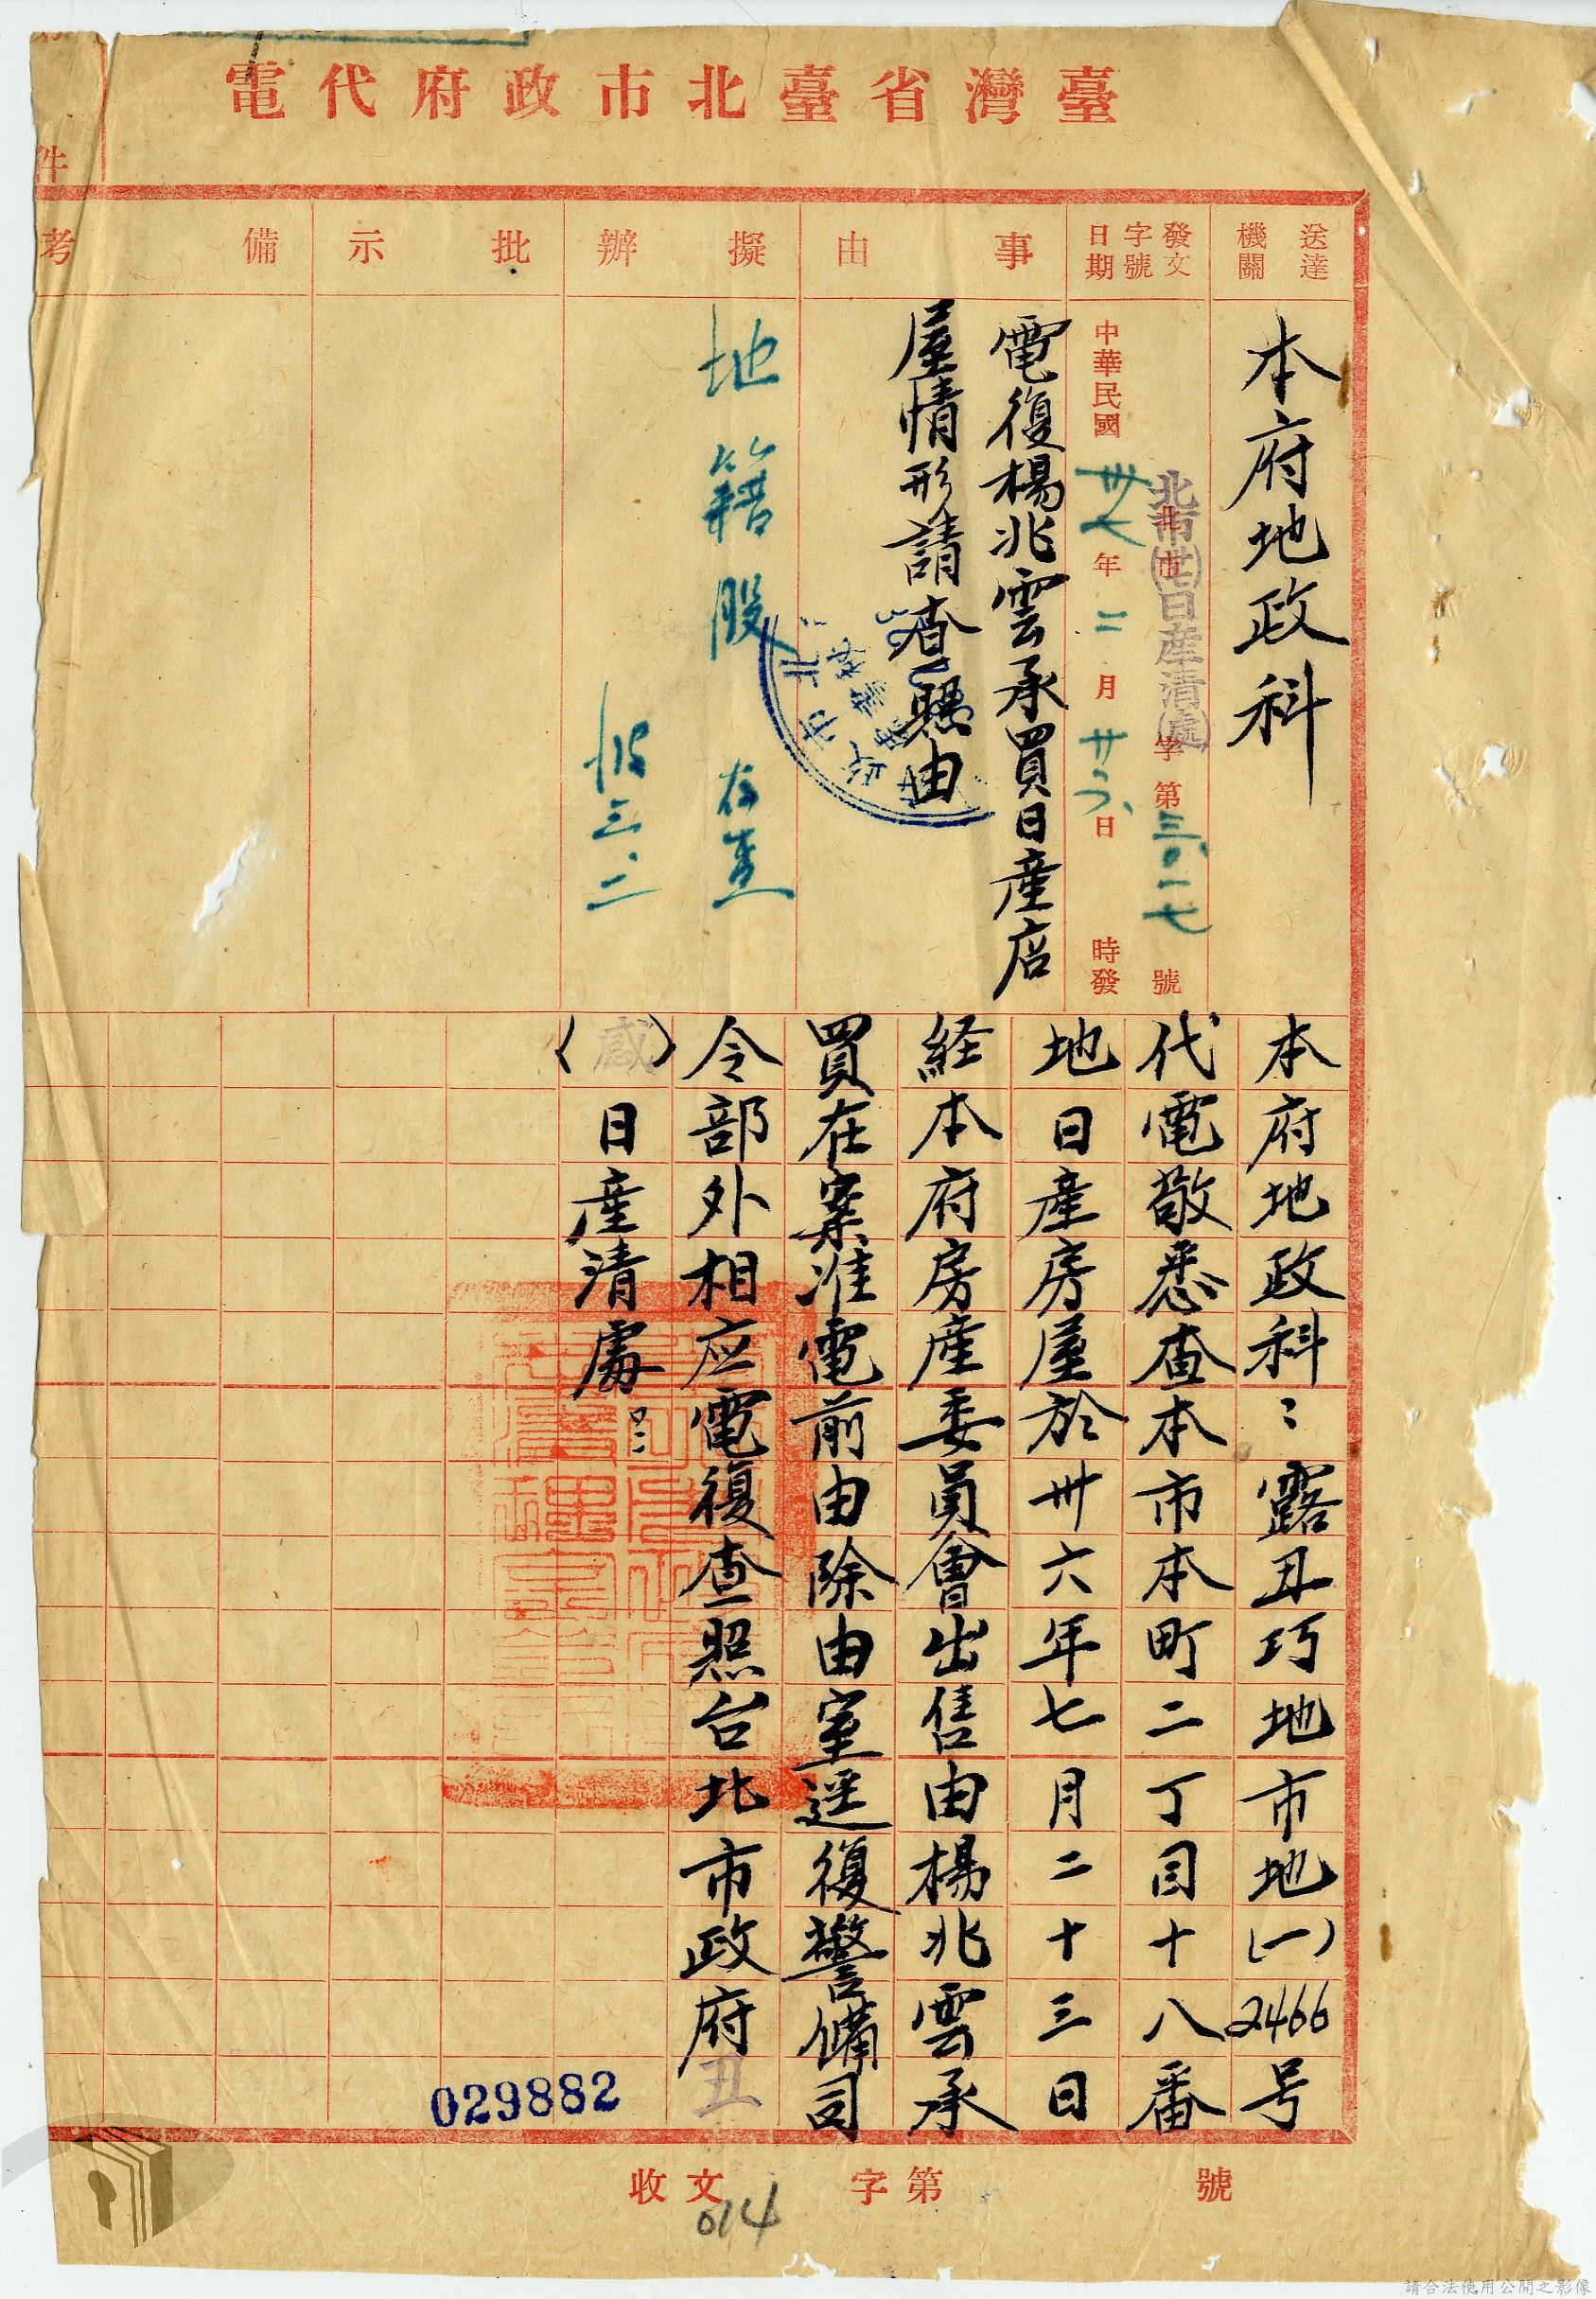 臺灣省臺北市政府代電
件
送達
機關
本府地政科
發文
字號
北市(卅七)日產清(處)
北市 字第三〇一七號
日期
中華民國卅七年二月廿六日 時發
事由
電復楊兆雲承買日產店
屋情形請查照由
擬辦
地籍股 存查
三、二
批示
備考
本府地政科:露丑巧地市地(一)2466号
代電敬悉查本市本町二丁目十八番
地日產房屋於卅六年七月二十三日
経本府房產委員會出售由楊兆雲承
買在案准電前由除由室逕復警備司
令部外相应電復查照台北市政府丑
(感)日產清處印
029882
收文 字第 號
014
請合法使用公開之影像